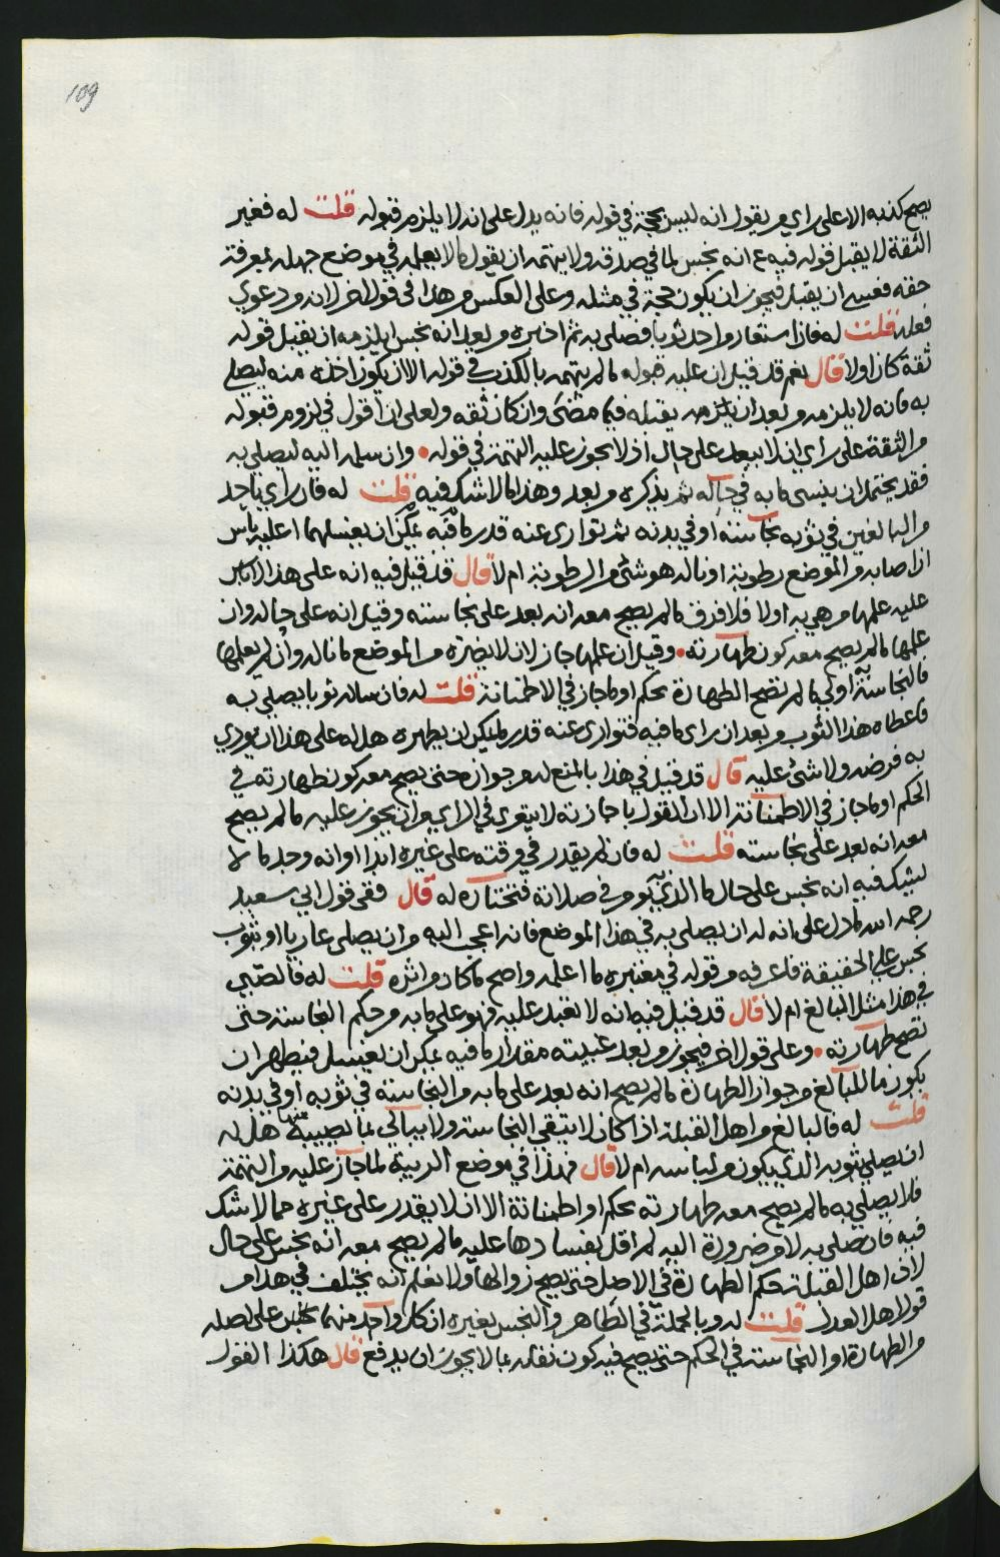 109
يصح كذبه الا على راي من يقول انه ليس بحجة في قوله فانه يدل على انه لا يلزمه قبوله قلت له فغير
الثقة لا يقبل قوله فيه انه نجس لما في صدقه ولا يتهمه ان يقول ما لا يعلمه في موضع جهله بمعرفة
حقه فعسى ان يقبل فيجوز ان يكون حجة في مثله وعلى العكس من هذا في قول اخر لانه من دعوى
فعله قلت له فاذا استعار واحد ثوبا فصلى به ثم اخبره من بعد انه نجس ايلزمه ان يقبل قوله
ثقة كان اولا قال نعم قد قيل ان عليه قبوله ما لم يتهمه بالكذب في قوله الا ان يكون اخذه منه ليصلي
به فانه لا يلزمه من بعد ان يقبله فيما مضى وان كان ثقه ولعلي ان اقول في لزوم قبوله
من الثقة على راي ان لا يبعد على حال اذ لا يجوز عليه التهمة في قوله وان سلمه اليه ليصلي به
فقد يحتمل ان ينسى ما به في حاله ثم يذكره من بعد وهذا ما لا شك فيه قلت له فان راى باحد
من البالغين في ثوبه نجاسة او في بدنه ثم توارى عنه قدر ما فيه يمكن ان يغسلهما اعليه باس
اذا صابه من الموضع رطوبة او ناله هو شئ من الرطوبة ام لا قال قد قيل فيه انه على هذا لا باس
عليه علمها من هي به اولا فلا فرق ما لم يصح معه انه بعد على نجاسته وقيل انه على حاله وان
علمها ما لم يصح معه كون طهارته وقيل ان علمها جاز لان لا يضره من الموضع ما ناله وان لم يعلمها
فالنجاسة اولى ما لم تصح الطهارة بحكم او ما جاز في الاطمئنانة قلت له فان ساله ثوبا يصلي به
فاعطاه هذا الثوب من بعد ان راى ما فيه فتوارى عنه قدر ما يمكن ان يطهره هل له على هذا ان يودي
به فرضه ولا شئ عليه قال قد قيل في هذا بالمنع له من جوازه حتى يصح معه كون طهارته في
الحكم او ما جاز في الاطمئنانة الا ان القول باجازته لا يتعرى في الراي من ان يجوز عليه ما لم يصح
معه انه بعد على نجاسته قلت له فان لم يقدر في وقته على غيره ابدا او انه وجد ما لا
يشك فيه انه نجس على حال ما الذي يوم في صلاته فتختاره له قال ففي قول ابي سعيد
رحمه الله ما دل على انه له ان يصلي به في هذا الموضع فانه اعجب اليه من ان يصلي عاريا او بثوب
نجس على الحقيقة فاعرفه من قوله في معتبره ما اعلمه واضح ما كان من اثره قلت له فالصبي
في هذا مثل البالغ ام لا قال قد قيل فيه انه لا تعبد عليه فهو على ما به من حكم النجاسة حتى
تصح طهارته وعلى قول اخر فيجوز من بعد غيبته مقدار ما فيه يمكن ان يغتسل فيطهر ان
يكون ما للبالغ من جواز الطهارة ما لم يصح انه بعد على ما به من النجاسة في ثوبه او في بدنه
قلت له فالبالغ من اهل القبلة اذا كان لا يتقي النجاسة ولا يبالي بما يصيبه منها هل له
ان يصلي بثوبه الذي يكون من لباسه ام لا قال فهذا في موضع الريبة لما جاز عليه من التهمة
فلا يصلي به ما لم يصح معه طهارته بحكم او اطمئنانة الا ان لا يقدر على غيره مما لا شك
فيه فان صلى به لا من ضرورة اليه لم اقل بفسادها عليه ما لم يصح معه انه نجس على حال
لان اهل القبلة حكم الطهارة في الاصل حتى يصح زوالها ولا نعلم انه يختلف في هذا من
قول اهل العدل قلت له وبالجملة في الطاهر والنجس بغيره ان كل واحد منهما على اصله
من الطهارة او النجاسة في الحكم حتى يصح فيه كون نقله بما لا يجوز ان يدفع قال هكذا القول